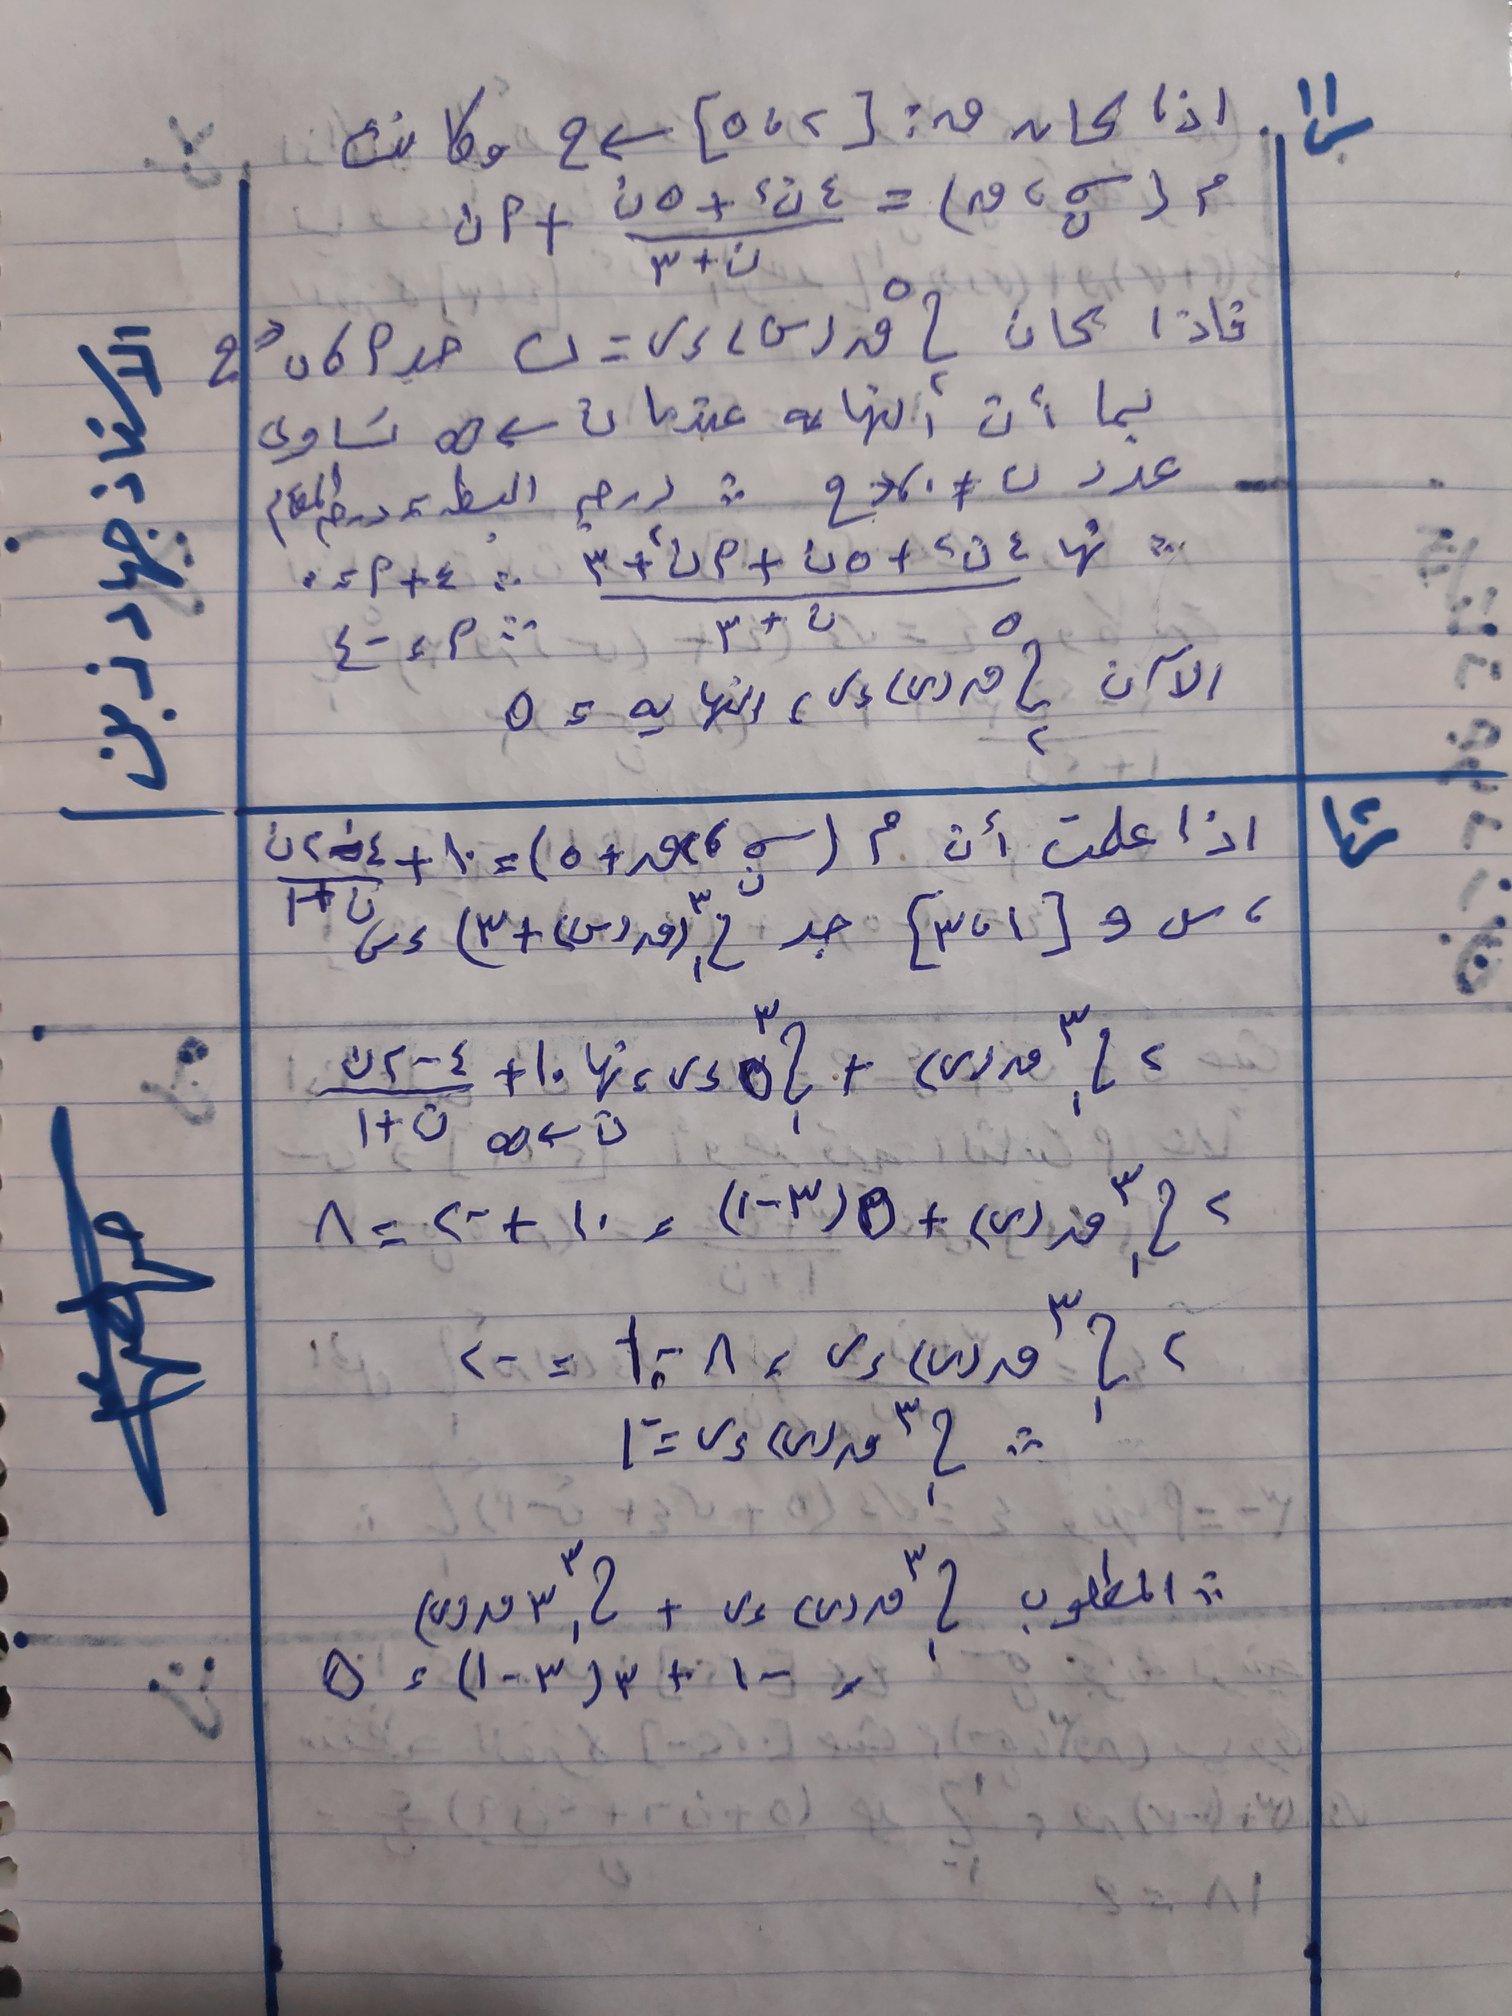 س١١
اذا كان ق: [٢، ٥] ← ح وكانت
م (σن، ق) = (٤ن٢ + ٥ن)/(ن + ٣) + أن
فاذا كان ∫٢^٥ ق(س) ءس = ب جد أ، ب ∈ ح
بما أن النهاية عندما ن ← ∞ تساوي
عدد ب ≠ ٠، ∈ ح ∴ درجة البسط = درجة المقام
∴ نها (٤ن٢ + ٥ن + أن٢ + ٣)/(ن + ٣) ∴ ٤ + أ = ٠
∴ أ = -٤
الآن ∫٢^٥ ق(س) ءس = النهاية = ٥
اذا علمت أن م (σن، ٢ق + ٥) = ١٠ + (٤ - ٢ن)/(ن + ١)
، س و [١، ٣] جد ∫١^٣ (ق(س) + ٣) ءس
٢ ∫١^٣ ق(س) + ∫١^٣ ٥ ءس = نها ١٠ + (٤ - ٢ن)/(ن + ١)
ن ← ∞
٢ ∫١^٣ ق(س) + ٥(٣ - ١) = ١٠ + -٢ = ٨
٢ ∫١^٣ ق(س) ءس = ٨ - ١٠ = -٢
∴ ∫١^٣ ق(س) ءس = -١
∴ المطلوب ∫١^٣ ق(س) ءس + ∫١^٣ ٣ ق(س)
= -١ + ٣(٣ - ١) = ٥
الاستاذ جهاد زين